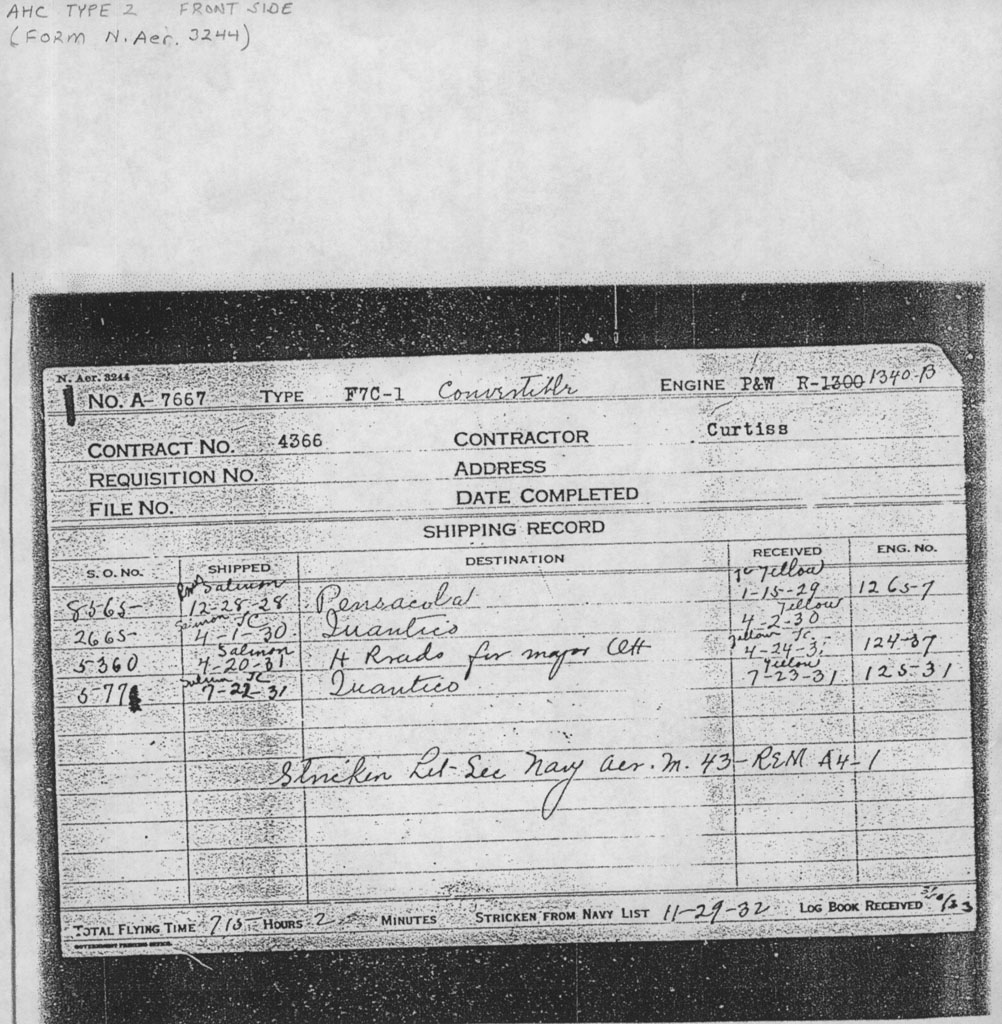 AHC TYPE 2 FRONT SIDE
(FORM N.Aer. 3244)
N. Aer. 3244
No. A- 7667 TYPE F7C-1 Convertible ENGINE P&W R-1300 1340-B
CONTRACT NO. 4366 CONTRACTOR Curtiss
REQUISITION NO. ADDRESS
FILE NO. DATE COMPLETED
SHIPPING RECORD
S. O. No. SHIPPED DESTINATION RECEIVED ENG. No.
Salmon Yellow
8565- 12-28-28 Pensacola 1-15-29 1265-7
Salmon JC Yellow
2665- 4-1-30 Quantico 4-2-30
Salmon Yellow JC
5360 4-20-31 H Roads for major OH 4-24-31 124-37
Salmon JC Yellow
5-771 7-22-31 Quantico 7-23-31 125-31
Stricken Let Sec Navy Aer. M. 43-REM A4-1
TOTAL FLYING TIME 715- HOURS 2 MINUTES STRICKEN FROM NAVY LIST 11-29-32 LOG BOOK RECEIVED
GOVERNMENT PRINTING OFFICE